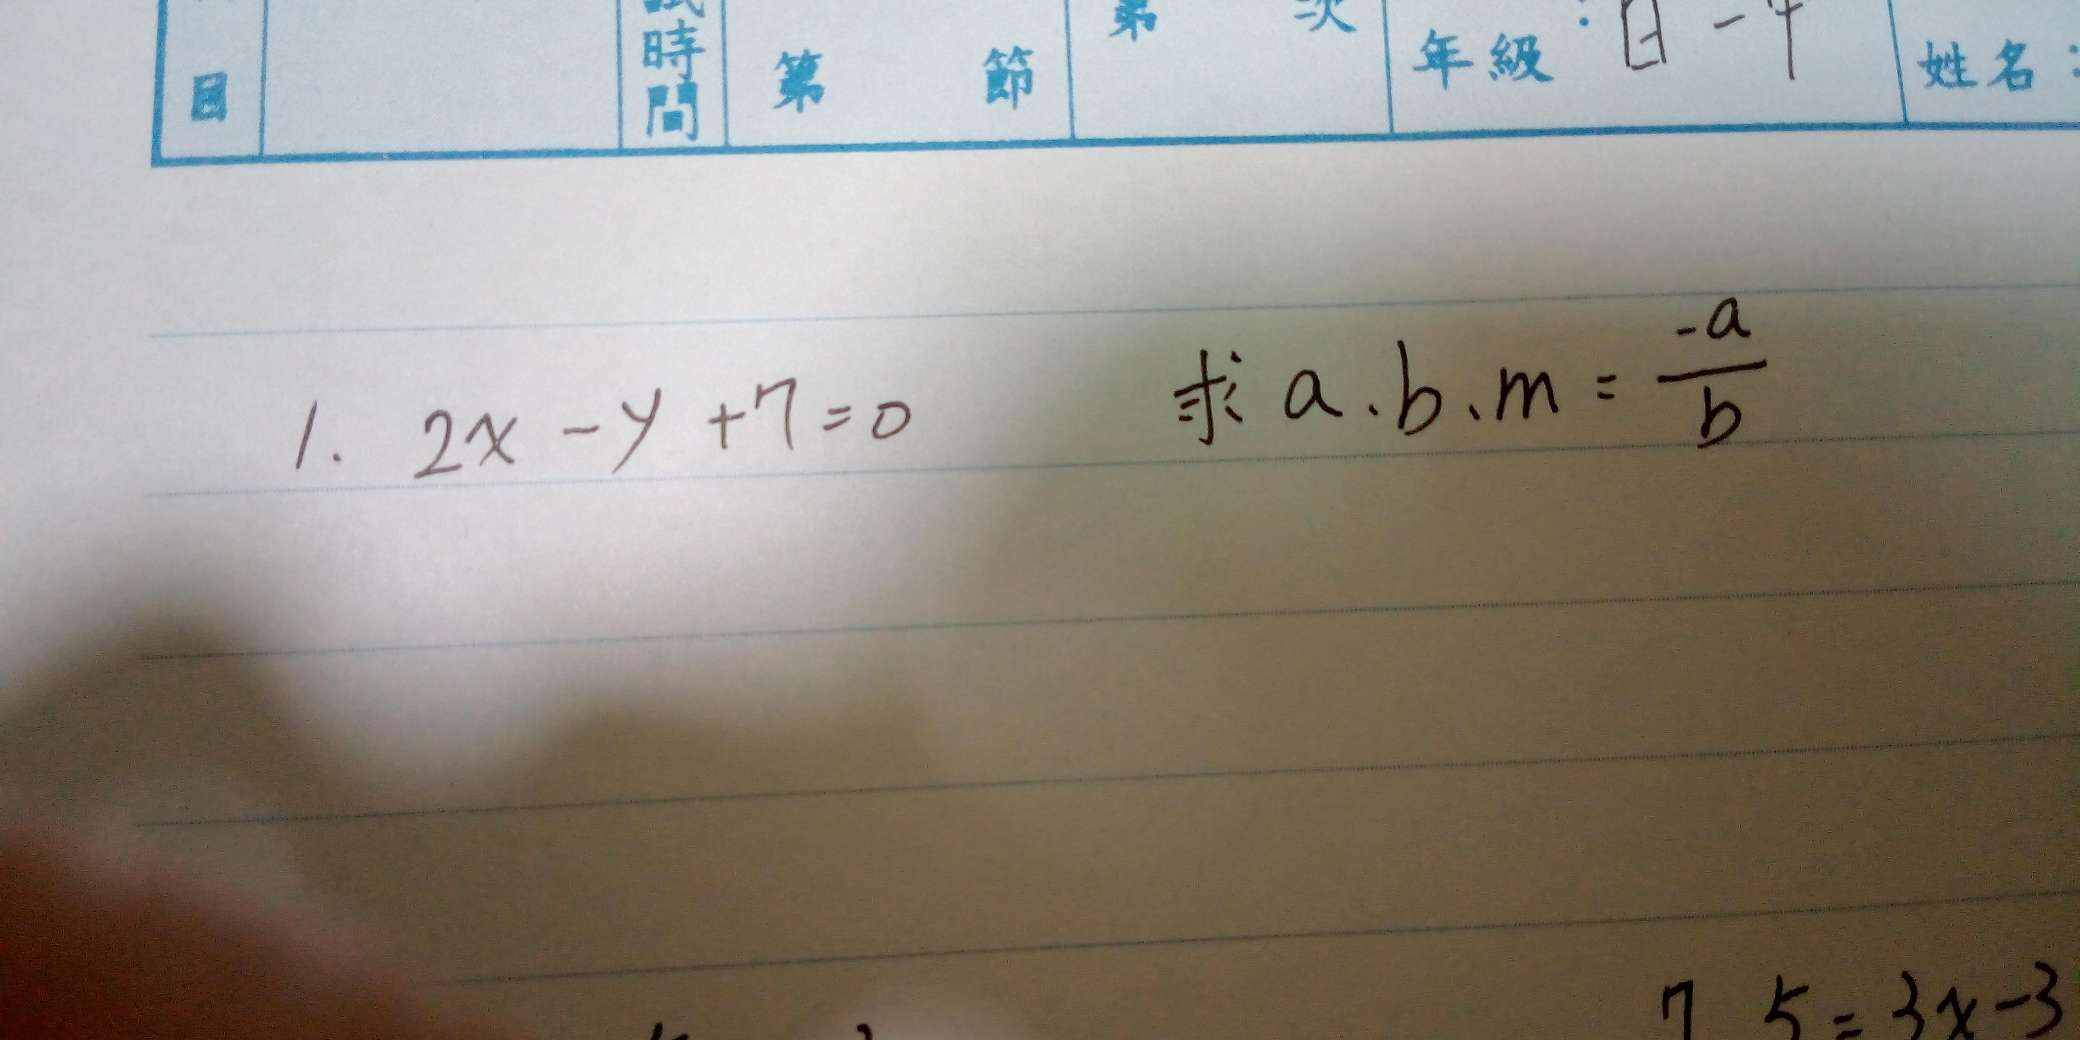 目 試時間 第 節 第 次 年級: 日-甲 姓名:
1. 2x-y+7=0 求 a、b、m = -a/b
5=3x-3